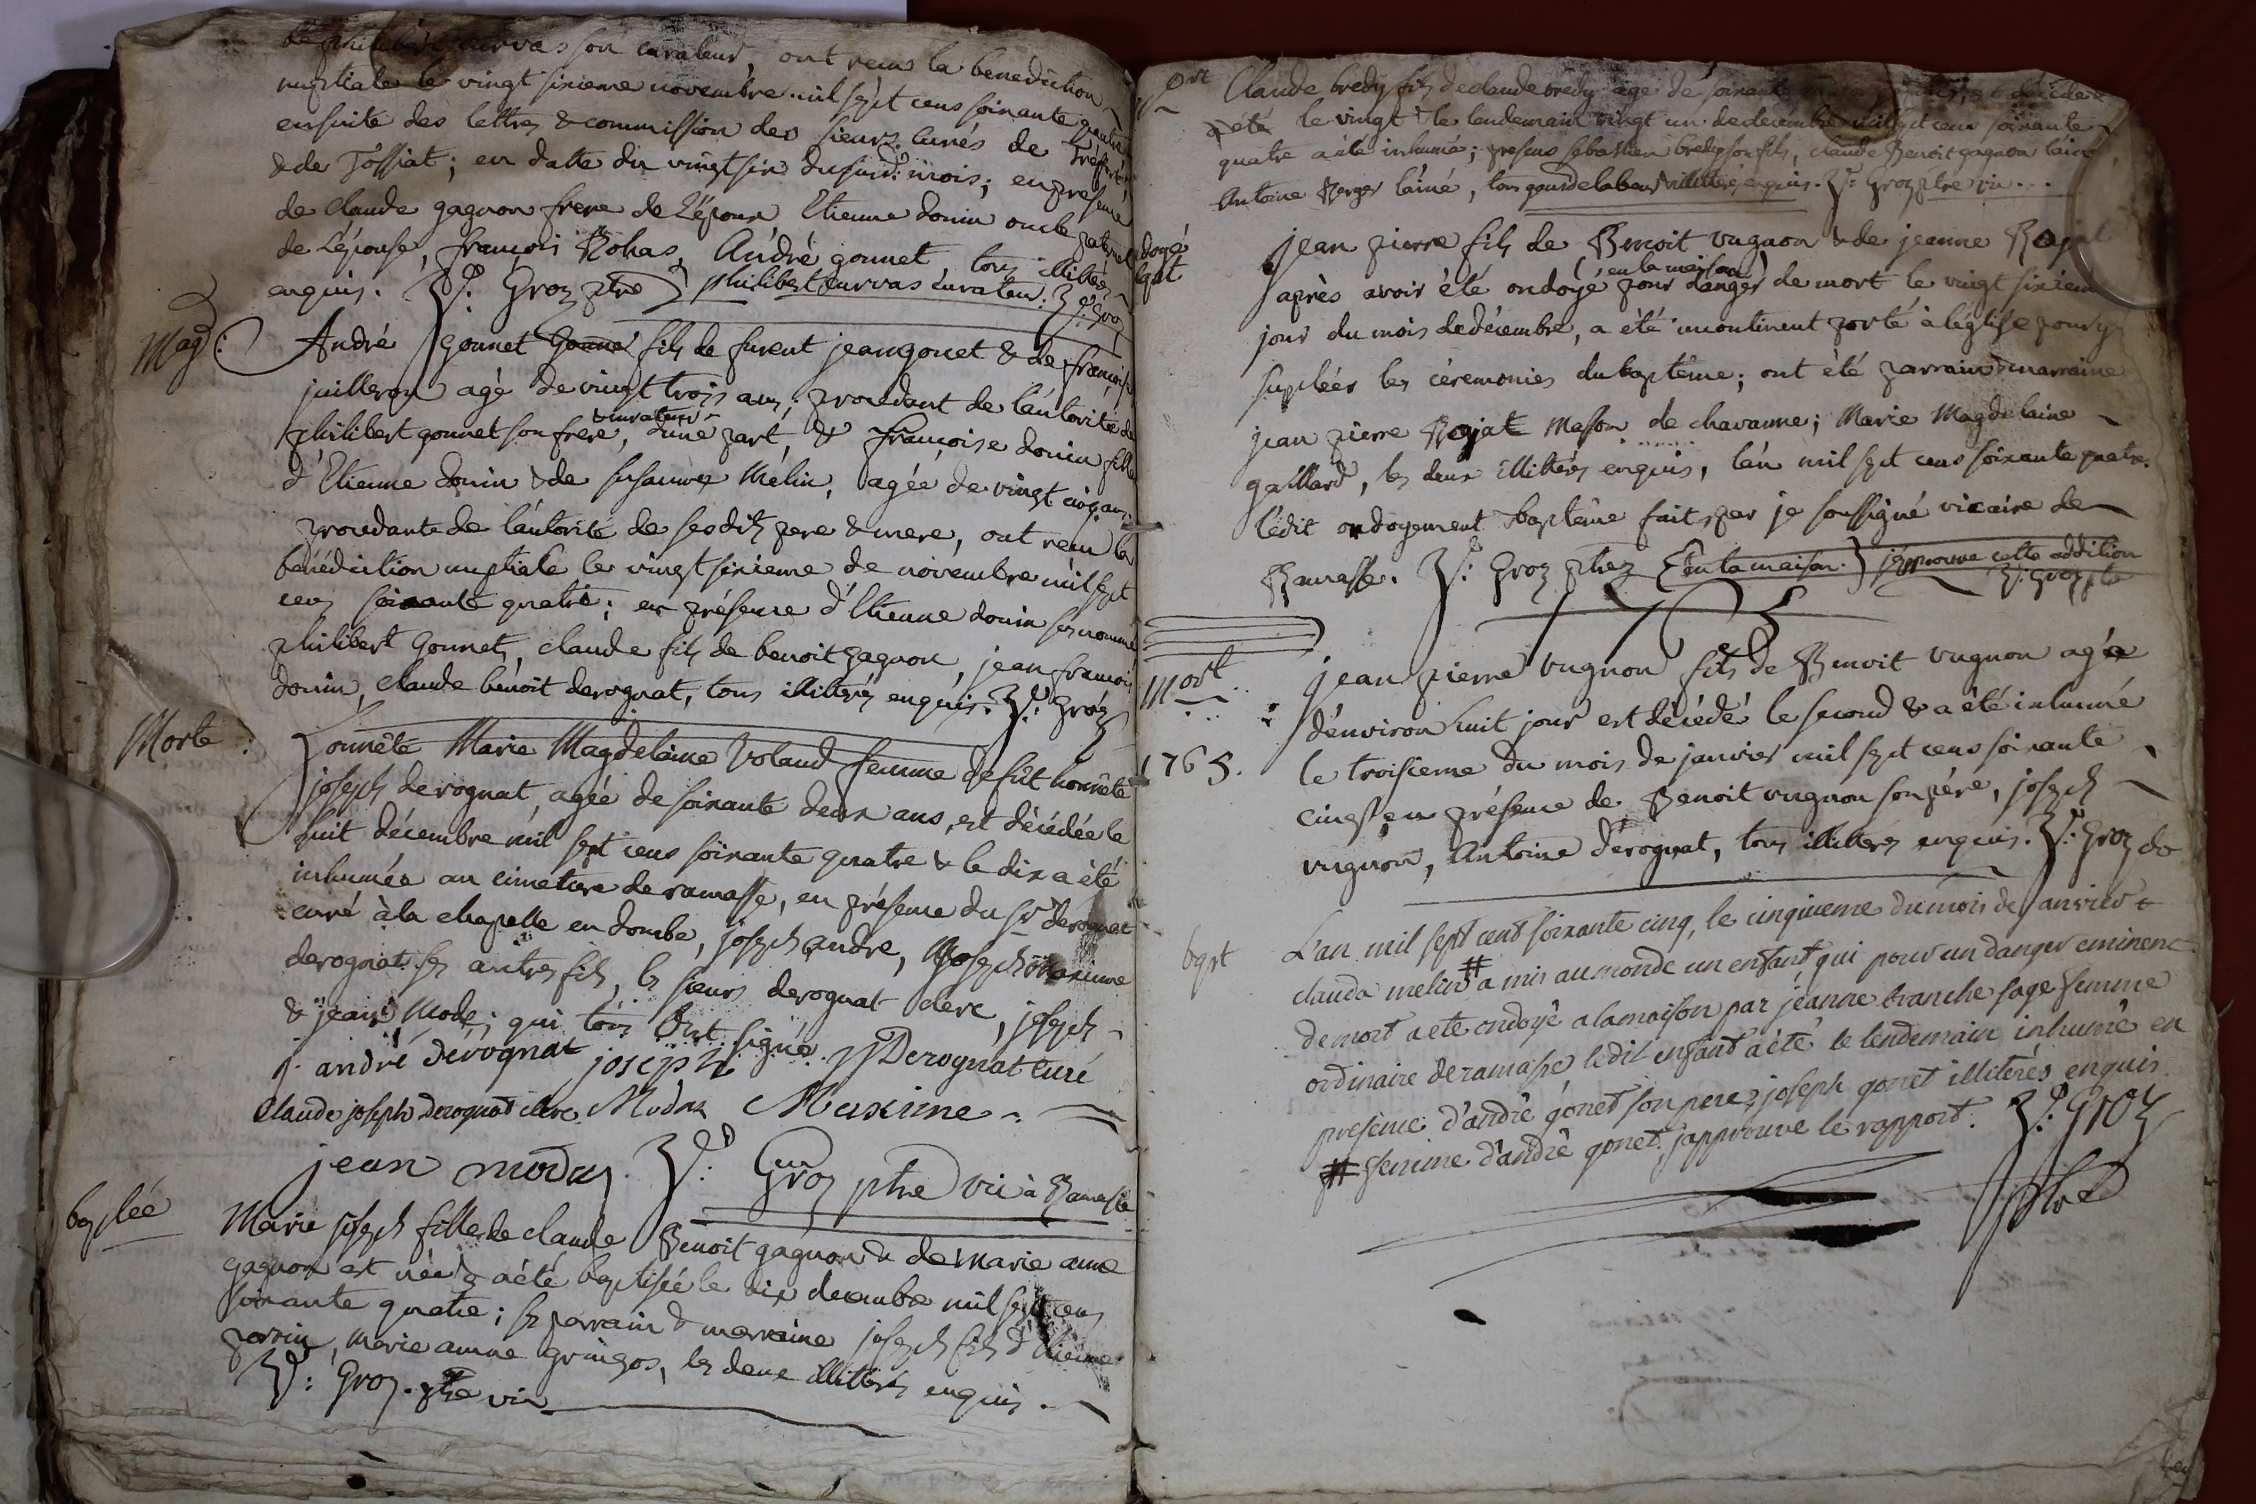 curvas son curateur, ont recus la benediction
nuptiale le vingt sixieme novembre mil sept cens soixante quatre
ensuite des lettres & commission des sieurs curés de Treffort,
& de Tossiat; en datte du vingt six dususd: mois; en presence
de claude gagnon frere de l'époux Etienne donin oncle paternel
de l'épouse, françois Rohas, André gonnet, tous illiteres
enquis. Groz ptre philibert curvas curateur. Groz
Mag:
André gonnet fils de furent jean gonet & de françoise
juilleron agé de vingt trois ans; procedant de l'autorité de
& curateur
philibert gonnet son frere, d'une part, & françoise donin fille
d'Etienne donin & de susanne Melin, agée de vingt cinq ans
procedante de l'autorité de sesdits pere & mere, ont reçu la
bénédiction nuptiale le vingt sixieme de novembre mil sept
cens soixante quatre; en présence d'Etienne donin
philibert Gonnet, claude fils de benoit gagnon, jean francois
donin, claude bénoit derognat, tous illiterés enquis. Groz
Morte:
honnéte Marie Magdelaine Voland femme de fût honnéte
joseph derognat, agée de soixante deux ans, est décédée le
huit décembre mil sept cens soixante quatre & le dix a été
inhumée au cimetiere de ramasse, en présence du sr derognat
curé à la chapelle en dombe, joseph andre, joseph maxime
derognat ses autres fils, les sieurs derognat clerc, joseph
& jean Modas; qui tous ont signé.
j. andré dérognat joseph JJ Derognat curé
Claude joseph derognat clerc Modas Maxime
jean modas. Groz ptre vic à Ramasse
baptée
Marie joseph fille de claude Benoit gagnon & de Marie anne
gagnon est née & a été baptisée le dix decembre mil sept cens
soixante quatre; ses parrain & marraine joseph fils d'Etienne
, marie anne, les deux illiterés enquis.
Groz. ptre vic
Mort
Claude bredy fils de claude bredy agé de soixante est décédé
le vingt & le lendemain vingt un de decembre mil sept cens soixante
quatre a été inhumé; presens sebastien bredy son fils, claude Benoit gagnon l'ainé
Antoine Berger l'ainé, tous gens de labeur illiterés enquis. Groz ptre vic...
ondoyé
bapt
jean pierre fils de Benoit vugnon & de jeanne Rojat
(en la maison)
après avoir été ondoyé pour danger de mort le vingt sixieme
jour du mois de décembre, a été incontinent porté à l'église pour y
supléer les céremonies du baptême; ont été parrain & marraine
jean pierre Rojat Masson de chavanne; Marie Magdelaine
gaillard, les deux illiterés enquis, l'an mil sept cens soixante quatre.
lédit ondoyement & baptême fait par je soussigné vicaire de
Ramasse. Groz ptre {en la maison.} japprouve cette addition
Groz ptre
Mort
jean pierre vugnon fils de Benoit vugnon agé
d'environ huit jour est décédé le second & a été inhumé
1765.
le troisieme du mois de janvier mil sept cens soixante
cinq en présence de Benoit vugnon son père, joseph
vugnon, Antoine dérognat, tous illiterés enquis. Groz
bapt
L'an mil sept cent soixante cinq, le cinquieme du mois de janvier
clauda melin # a mis au monde un enfant qui pour un danger eminent
de mort a eté ondoyé a la maison par jeanne tranche sage femme
ordinaire de ramasse ledit enfant a été le lendemain inhumé en
presence d'andré gonet son pere, joseph gonet illiterés enquis.
# femme d'andré gonet. japprouve le rapport. Groz
ptre